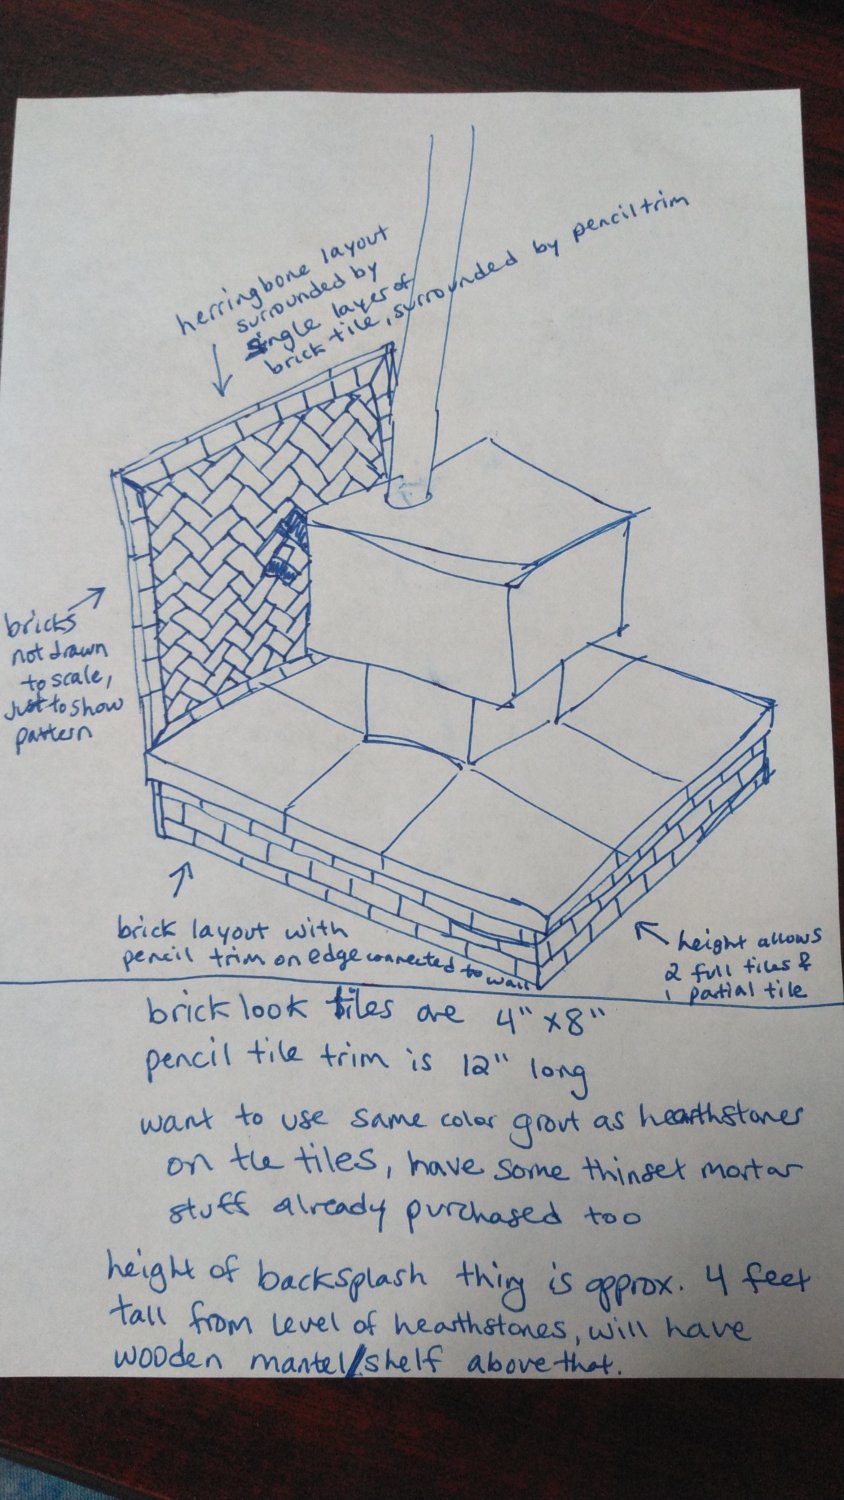 herringbone layout
surrounded by
single layer of
brick tile, surrounded by pencil trim
bricks
not drawn
to scale,
just to show
pattern
brick layout with
pencil trim on edge connected to wall
height allows
2 full tiles &
1 partial tile
brick look tiles are 4" x 8"
pencil tile trim is 12" long
want to use same color grout as hearthstones
on the tiles, have some thinset mortar
stuff already purchased too
height of backsplash thing is approx. 4 feet
tall from level of hearthstones, will have
wooden mantel/shelf above that.